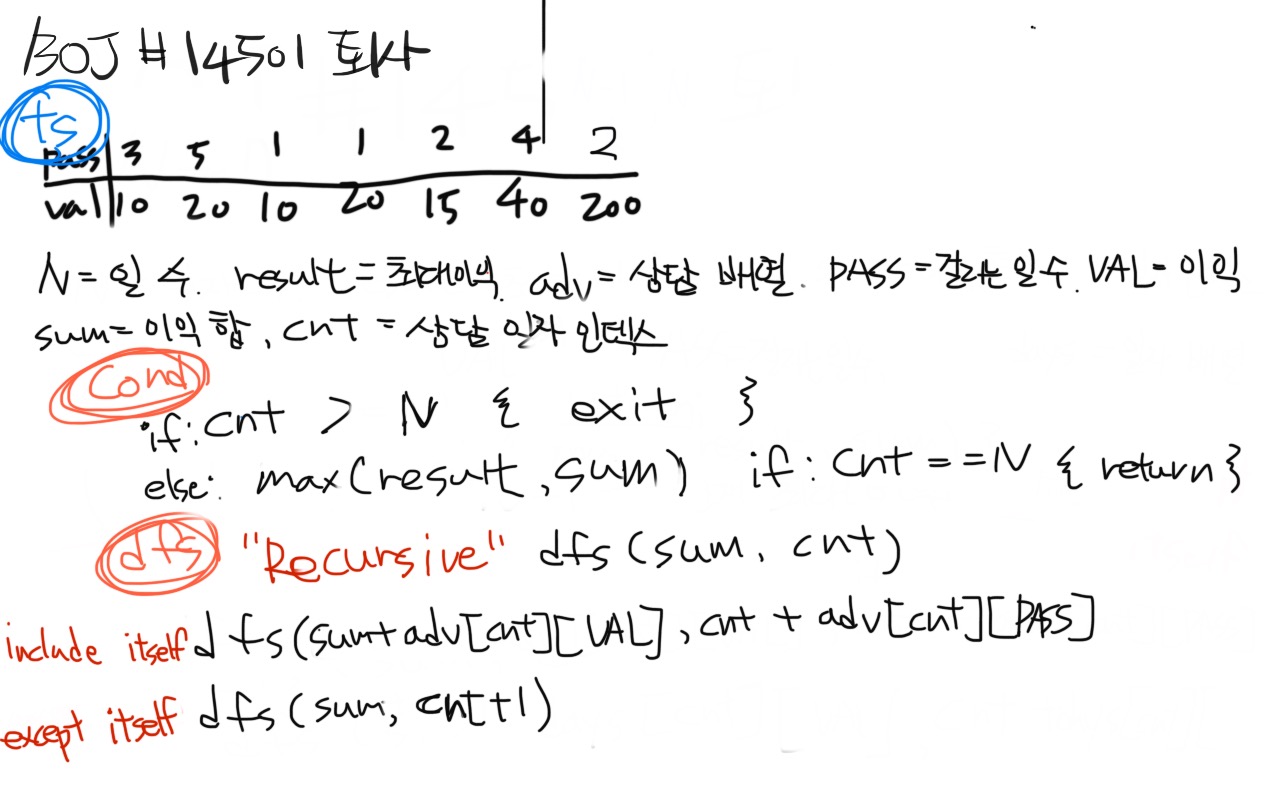 BOJ #14501 퇴사
ts
pass 3 5 1 1 2 4 2
val 10 20 10 20 15 40 200
N = 일 수. result = 최대이익. adv = 상담 배열. PASS = 걸리는 일수. VAL = 이익
sum = 이익 합, cnt = 상담 일자 인덱스
Cond
if: cnt > N { exit }
else: max(result, sum) if: cnt == N { return }
dfs "Recursive" dfs(sum, cnt)
include itself dfs(sum+adv[cnt][VAL], cnt + adv[cnt][PASS]
except itself dfs(sum, cnt+1)